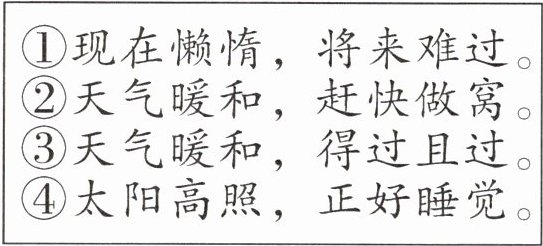 ①现在懒惰，将来难过。
②天气暖和，赶快做窝。
③天气暖和，得过且过。
④太阳高照，正好睡觉。